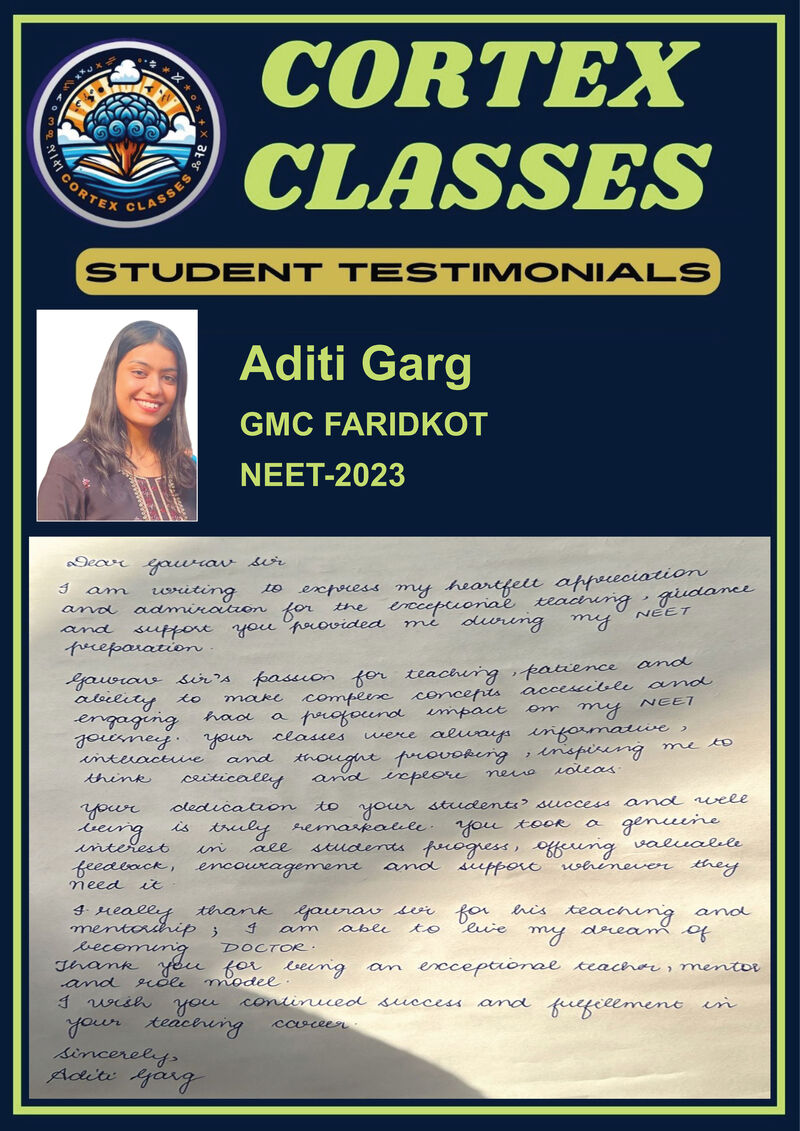 CORTEX
CLASSES
CORTEX CLASSES
STUDENT TESTIMONIALS
Aditi Garg
GMC FARIDKOT
NEET-2023
Dear Gaurav Sir
I am writing to express my heartfelt appreciation
and admiration for the exceptional teaching, guidance
and support you provided me during my NEET
preparation.
Gaurav Sir's passion for teaching, patience and
ability to make complex concepts accessible and
engaging had a profound impact on my NEET
journey. Your classes were always informative,
interactive and thought provoking, inspiring me to
think critically and explore new ideas.
Your dedication to your students' success and well
being is truly remarkable. You took a genuine
interest in all students progress, offering valuable
feedback, encouragement and support whenever they
need it.
I really thank Gaurav Sir for his teaching and
mentorship; I am able to live my dream of
becoming DOCTOR.
Thank you for being an exceptional teacher, mentor
and role model.
I wish you continued success and fulfillment in
your teaching career.
Sincerely,
Aditi Garg